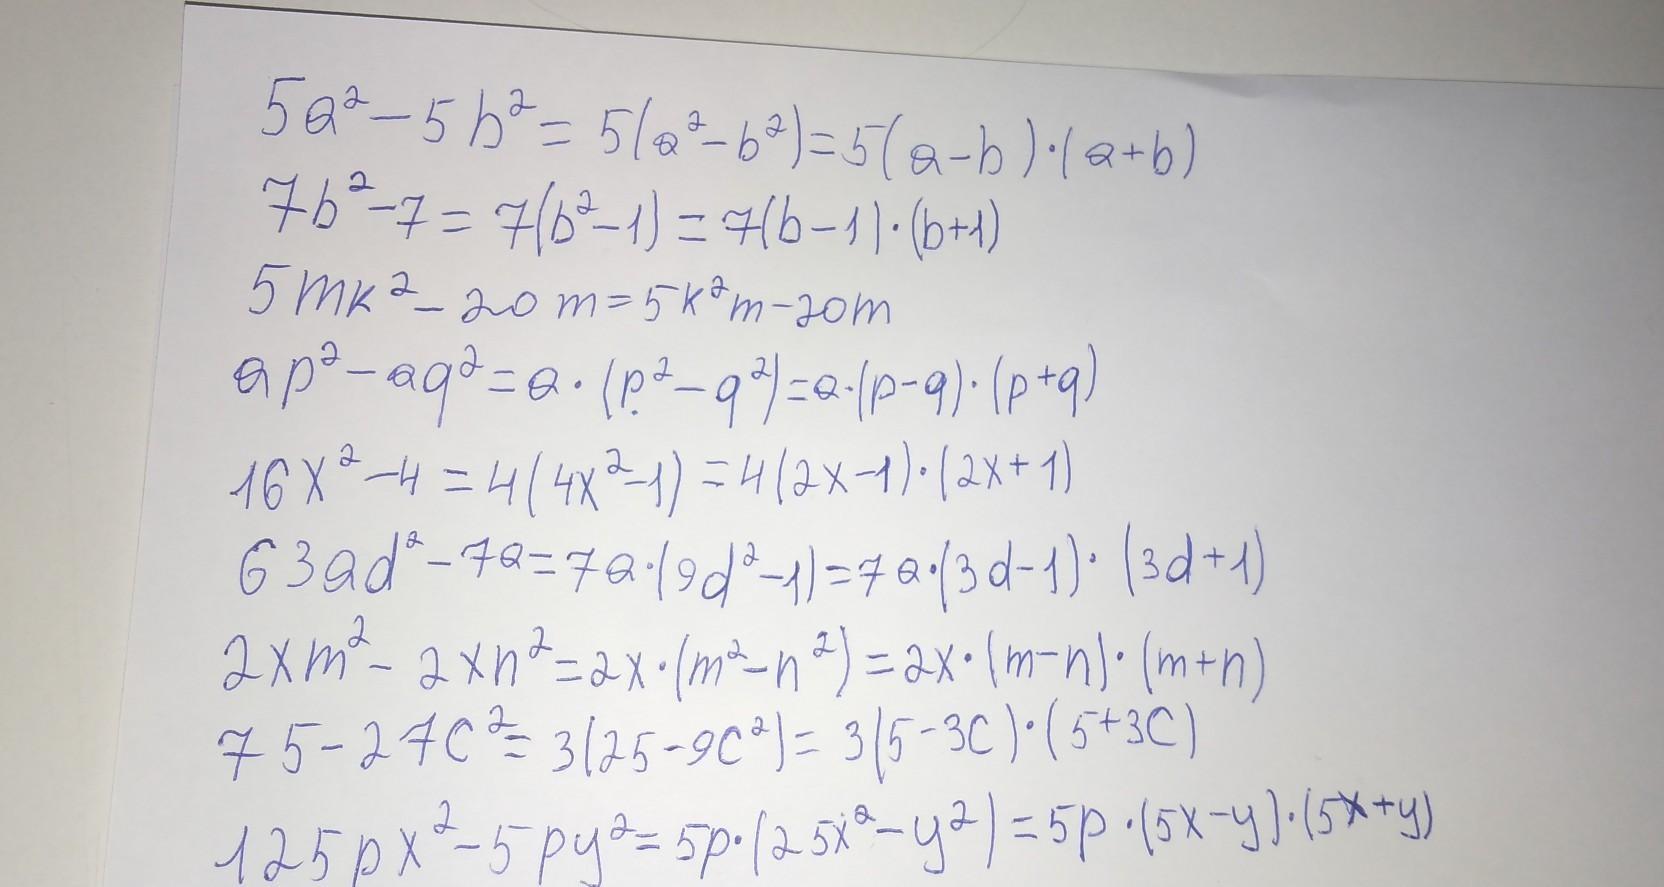 5a² - 5b² = 5(a² - b²) = 5(a - b)·(a + b)
7b² - 7 = 7(b² - 1) = 7(b - 1)·(b + 1)
5mk² - 20m = 5k²m - 20m
ap² - aq² = a·(p² - q²) = a·(p - q)·(p + q)
16x² - 4 = 4(4x² - 1) = 4(2x - 1)·(2x + 1)
63ad² - 7a = 7a·(9d² - 1) = 7a·(3d - 1)·(3d + 1)
2xm² - 2xn² = 2x·(m² - n²) = 2x·(m - n)·(m + n)
75 - 27c² = 3(25 - 9c²) = 3(5 - 3c)·(5 + 3c)
125px² - 5py² = 5p·(25x² - y²) = 5p·(5x - y)·(5x + y)